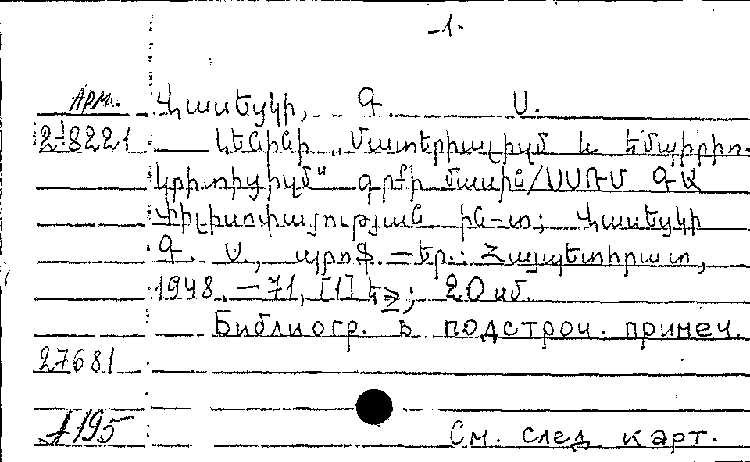 -1-
Арм. Վասեցկի, Գ. Ս.
2-8221 Լենինի „Մատերիալիզմ և էմպիրիո-
կրիտիցիզմ" գրքի մասին/ՍՍՌՄ ԳԱ
Փիլիսոփայության ին-տ; Վասեցկի
Գ. Ս., պրոֆ. — Եր.: Հայպետհրատ,
1948. — 71, [1] եջ; 20 սմ.
Библиогр. в подстроч. примеч.
27681
195
См. след. карт.